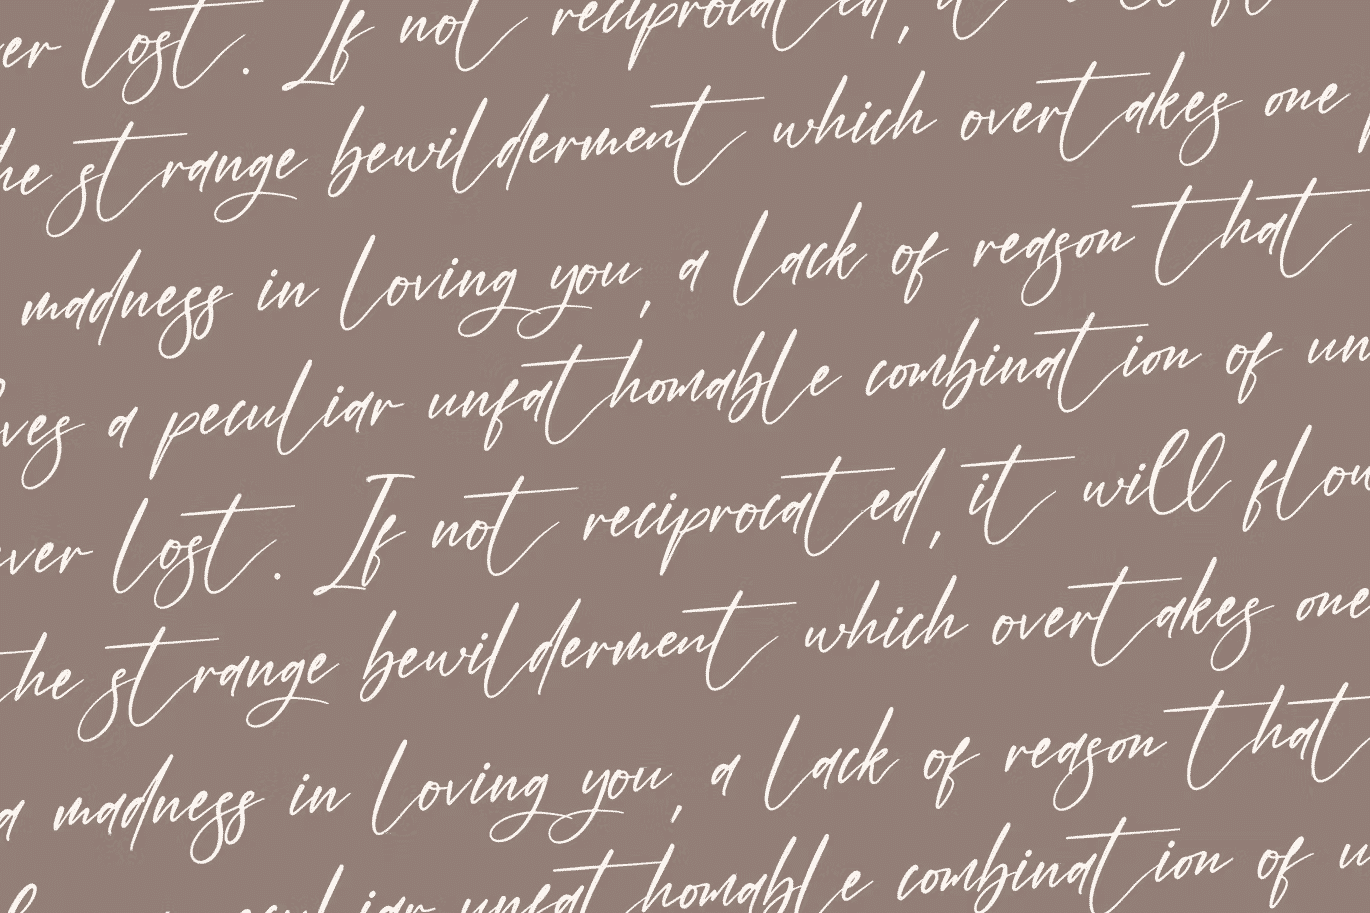 er lost. If not reciprocated, it
he strange bewilderment which overtakes one
madness in loving you, a lack of reason that
ves a peculiar unfathomable combination of un
ver lost. If not reciprocated, it will flow
the strange bewilderment which overtakes one
a madness in loving you, a lack of reason that
peculiar unfathomable combination of u